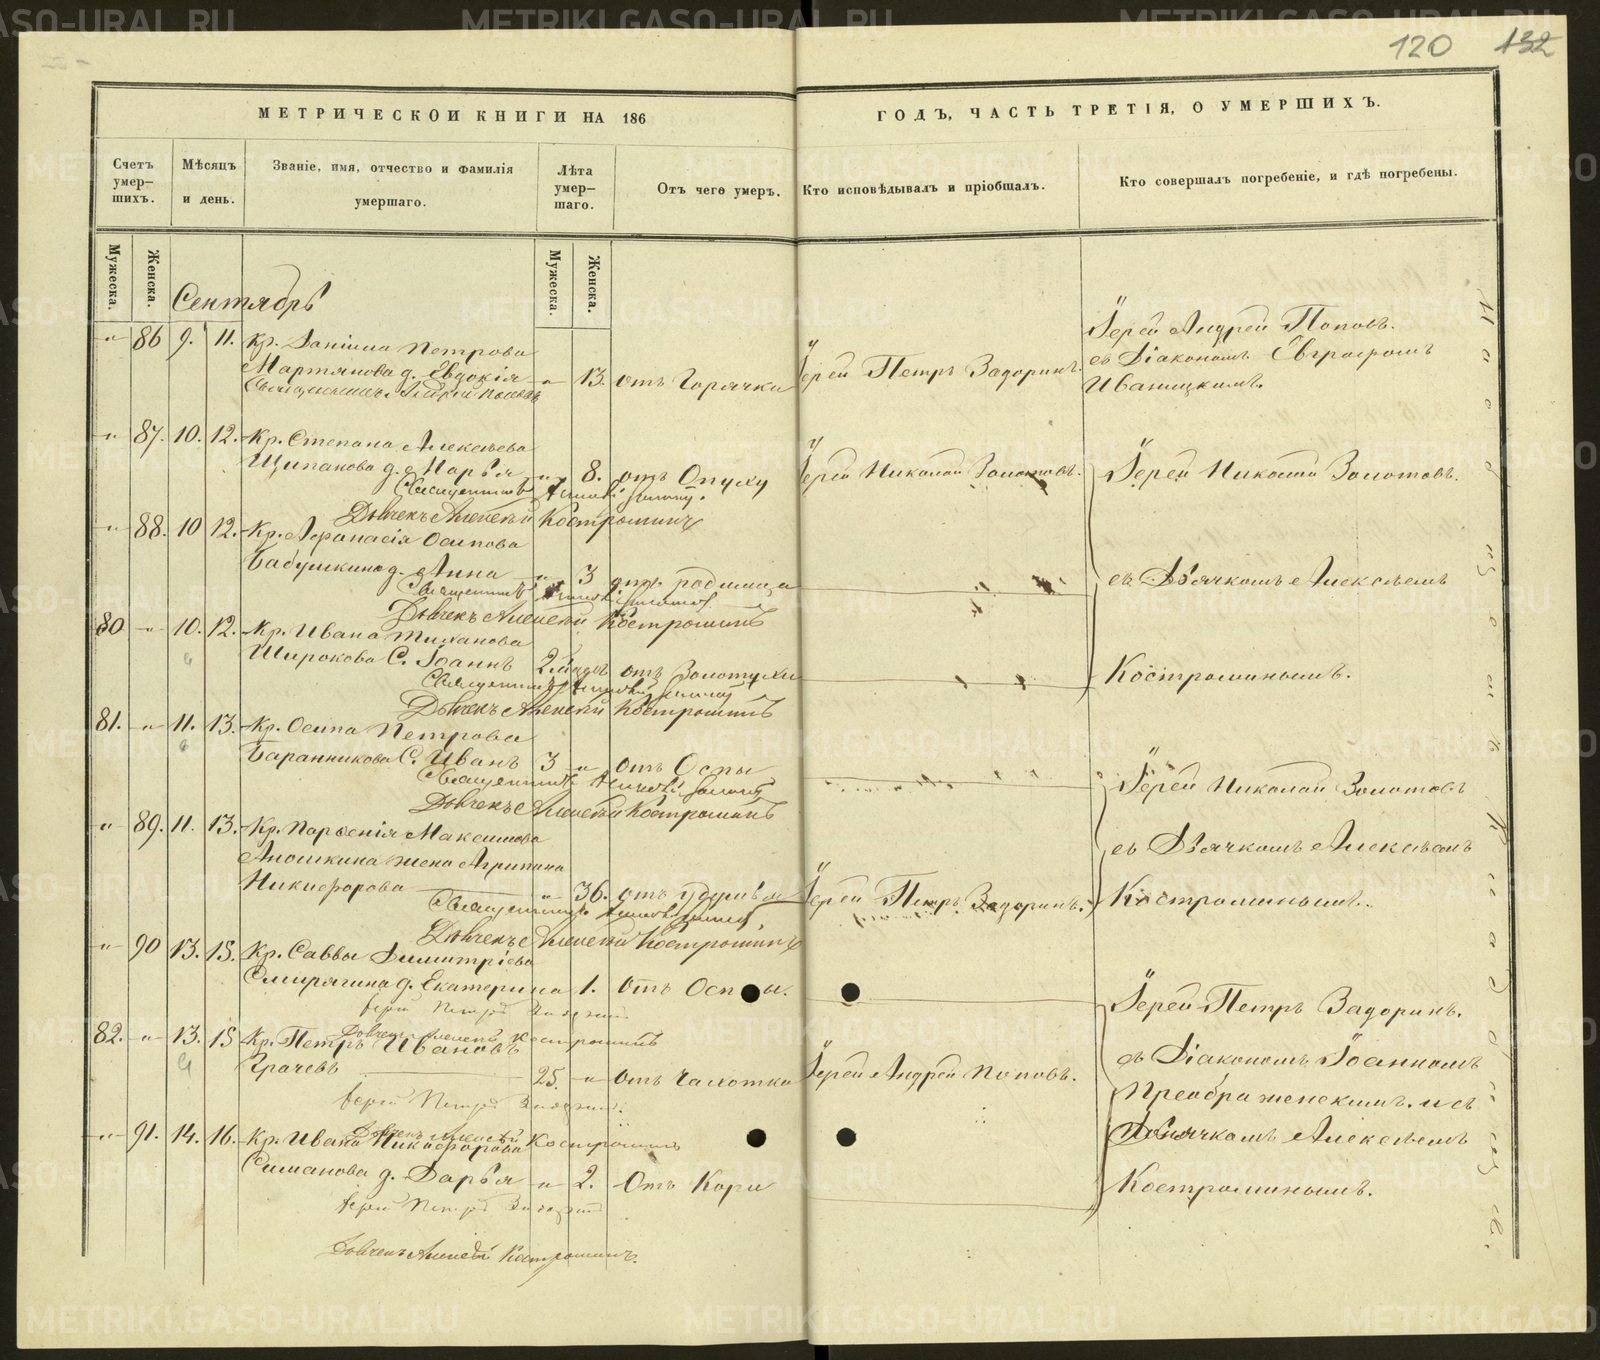 120 132
МЕТРИЧЕСКОЙ КНИГИ НА 186 ГОДЪ, ЧАСТЬ ТРЕТІЯ, О УМЕРШИХЪ.
Счетъ умер–шихъ.
Мѣсяцъ и день.
Званіе, имя, отчество и фамилія умершаго.
Лѣта умер–шаго.
Отъ чего умеръ.
Кто исповѣдывалъ и пріобщалъ.
Кто совершалъ погребеніе, и гдѣ погребены.
Мужеска. Женска. Мужеска. Женска.
Сентябрь
Іерей Андрей Поповъ.
„ 86 9. 11. Кр. Петрова
съ Діакономъ Евграфомъ
Мартянова д. Евдокія „ 13. отъ Горячки Іерей Петръ Задоринъ.
Иваницкимъ.
Священникъ Андрей Поповъ
„ 87. 10. 12. Кр. Степана Алексѣева
Щипанова д. Марья „ 8. отъ Опуху Іерей Николай Золотовъ. Іерей Николай Золотовъ.
Священникъ Николай Золотовъ
Дьячекъ Алексѣй Костроминъ
„ 88. 10 12. Кр. Афанасія Осипова
Бабушкина д. Анна „ 3 отъ родимца съ Дьячкомъ Алексѣемъ
Священникъ Николай Золотовъ
Дьячекъ Алексѣй Костроминъ
80 „ 10. 12. Кр. Ивана
Широкова С. Іоаннъ 2 отъ Золотухи Костроминымъ.
Священникъ Николай Золотовъ
Дьячекъ Алексѣй Костроминъ
81. „ 11. 13. Кр. Осипа Петрова
Баранникова С. Иванъ 3 „ отъ Оспы Іерей Николай Золотовъ
Священникъ Николай Золотовъ
Дьячекъ Алексѣй Костроминъ
„ 89. 11. 13. Кр. Парфенія Максимова
Аношкина жена Агрипина съ Дьячкомъ Алексѣемъ
Никифорова „ 36. отъ Іерей Петръ Задоринъ. Костроминымъ.
Священникъ Николай Золотовъ
Дьячекъ Алексѣй Костроминъ
„ 90 13. 15. Кр. Саввы Димитріева
Смирягина д. Екатерина 1. Отъ Оспы. Іерей Петръ Задоринъ.
Іерей Петръ Задоринъ
Дьячекъ Алексѣй Костроминъ
82. „ 13. 15 Кр. Петръ Ивановъ съ Діакономъ Іоанномъ
Грачевъ 25. „ отъ Чахотки Іерей Андрей Поповъ.
Преображенскимъ. и съ
Іерей Петръ Задоринъ.
Дьячекъ Алексѣй Костроминъ
„ 91. 14. 16. Кр. Ивана Никифорова Дьячкомъ Алексѣемъ
Симанова д. Дарья „ 2. Отъ Кори Костроминымъ.
Іерей Петръ Задоринъ
Дьячекъ Алексѣй Костроминъ.
METRIKI.GASO-URAL.RU